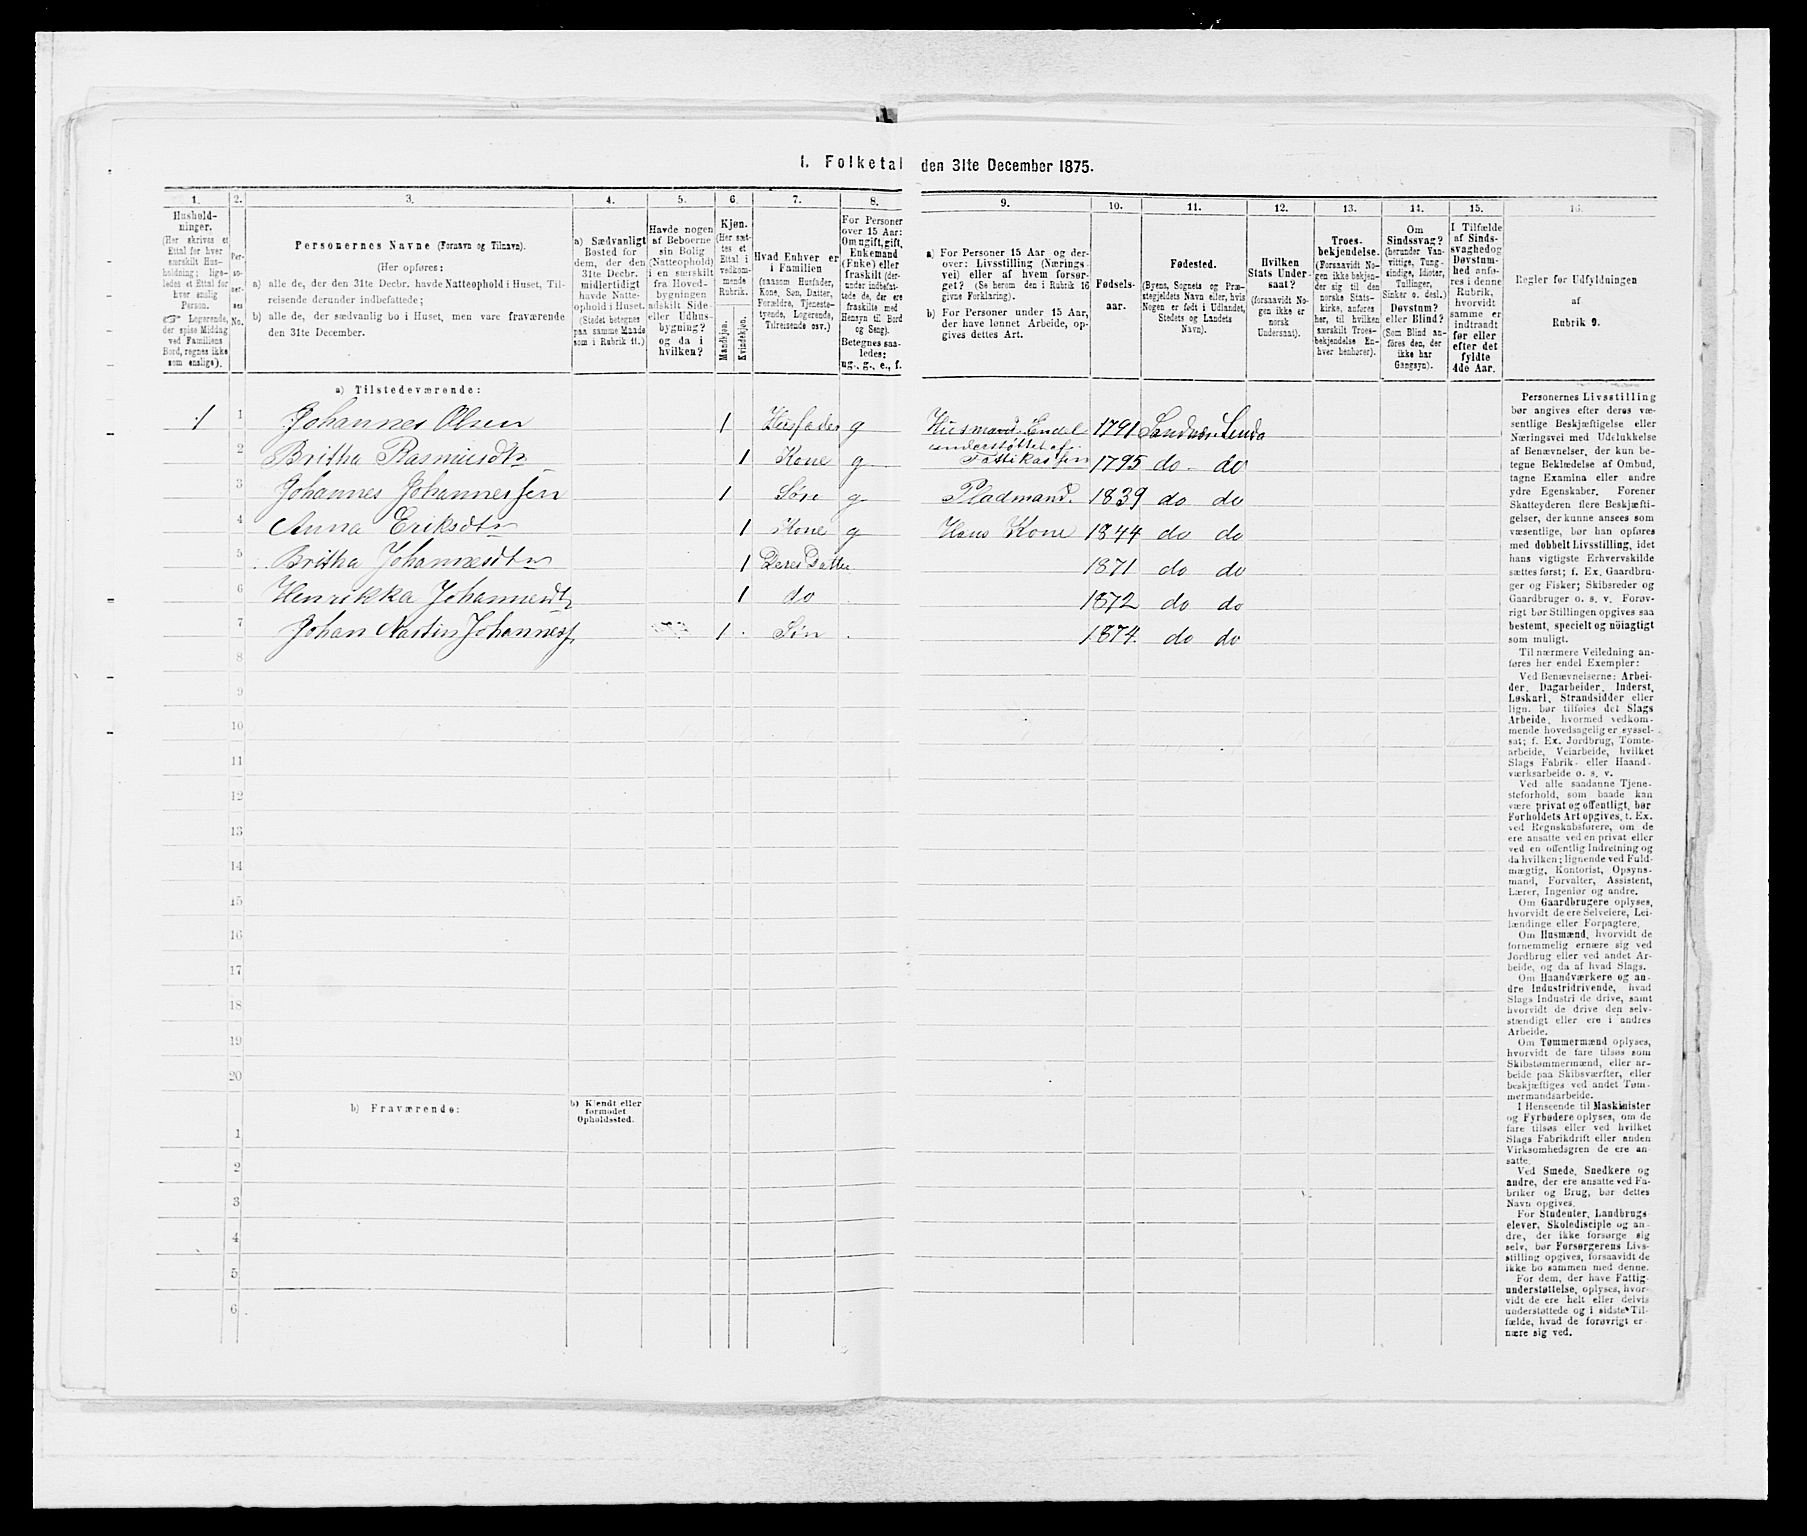 1. Folketal den 31te December 1875.
1. 2. 3. 4. 5. 6. 7. 8. 9. 10. 11. 12. 13. 14. 15. 16.
Hushold-
ninger.
(Her skrives et
Ettal for hver
særskilt Hus-
holdning; lige-
ledes et Ettal for
hver enslig
Person.
☞ Logerende,
der spise Middag
ved Familiens
Bord, regnes ikke
som enslige).
Per-
so-
ner-
nes
No.
Personernes Navne (Fornavn og Tilnavn).
(Her opføres:
a) alle de, der den 31te Decbr. havde Natteophold i Huset, Til-
reisende derunder indbefattede;
b) alle de, der sædvanlig bo i Huset, men vare fraværende
den 31te December.
a) Sædvanligt
Bosted for
dem, der den
31te Decbr.
midlertidigt
havde Natte-
ophold i Huset.
(Stedet betegnes
paa samme Maade
som i Rubrik 11.)
Havde nogen
af Beboerne
sin Bolig
(Natteophold)
i en særskilt
fra Hoved-
bygningen
adskilt Side-
eller Udhus-
bygning?
og da i
hvilken?
Kjøn.
(Her sæt-
tes et
Ettal i
vedkom-
mende
Rubrik.
Mandkjøn.
Kvindekjøn.
Hvad Enhver er
i Familien
(saasom Husfader,
Kone, Søn, Datter,
Forældre, Tjeneste-
tyende, Logerende,
Tilreisende osv.)
For Personer
over 15 Aar:
Om ugift, gift,
Enkemand
(Enke) eller
fraskilt (der-
under indbefat-
tede de, der ere
fraskilte med
Hensyn til Bord
og Seng).
Betegnes saa-
ledes:
ug., g., e., f.
a) For Personer 15 Aar og der-
over: Livsstilling (Nærings-
vei) eller af hvem forsør-
get? (Se herom den i Rubrik 16
givne Forklaring).
b) For Personer under 15 Aar,
der have lønnet Arbeide, op-
gives dettes Art.
Fødsels-
aar.
Fødested.
(Byens, Sognets og Præ-
stegjeldets Navn eller, hvis
Nogen er født i Udlandet,
Stedets og Landets
Navn).
Hvilken
Stats Under-
saat?
(forsaavidt No-
gen ikke er
norsk
Undersaat).
Troes-
bekjendelse.
(Forsaavidt No-
gen ikke bekjen-
der sig til den
norske Stats-
kirke, anføres
her, til hvilken
særskilt Troes-
bekjendelse En-
hver henhører).
Om
Sindssvag?
(herunder Van-
vittige, Tung-
sindige, Idioter,
Tullinger,
Sinker o. desl.)
Døvstum?
eller Blind?
(Som Blind an-
føres den, der
ikke har
Gangsyn).
I Tilfælde
af Sinds-
svaghed og
Døvstum-
hed anfø-
res i denne
Rubrik,
hvorvidt
samme er
indtraadt
før eller
efter det
fyldte
4de Aar.
Regler før Udfyldningen
af
Rubrik 9.
a) Tilstedeværende:
1 1 Johannes Olsen 1 Husfader g Husmand Endel 1791 Sandnæs Lenda
understøttet af
2 Britha Rasmusdtr 1 Kone g Fattikassen 1795 do do
3 Johannes Johannessen 1 Søn g Pladmand. 1839 do do
4 Anna Eriksdtr 1 Kone g Hans Kone 1844 do do
5 Britha Johannesdtr 1 Deres Datter 1871 do do
6 Henrikka Johannesdtr 1 do 1872 do do
7 Johan Mastin Johannesf 1 Søn 1874. do do
8
9
10
11
12
13
14
15
16
17
18
19
20
b) Fraværende:
b) Kjendt eller
formodet
Opholdssted.
1
2
3
4
5
6
Personernes Livsstilling
bør angives efter deres væ-
sentlige Beskjæftigelse eller
Næringsvei med Udelukkelse
af Benævnelser, der kun be-
tegne Beklædelse af Ombud,
tagne Examina eller andre
ydre Egenskaber. Forener
Skatteyderen flere Beskjæfti-
gelser, der kunne ansees som
væsentlige, bør han opføres
med dobbelt Livsstilling, idet
hans vigtigste Erhvervskilde
sættes først; f. Ex. Gaardbru-
ger og Fisker; Skibsreder og
Gaardbruger o. s. v. Forøv-
rigt bør Stillingen opgives saa
bestemt, specielt og nöiagtigt
som muligt.
Til nærmere Veiledning an-
føres her endel Exempler:
Ved Benævnelserne: Arbei-
der, Dagarbeider, Inderst,
Løskarl, Strandsidder eller
lign. bør tilføies det Slags
Arbeide, hvormed vedkom-
mende hovedsagelig er syssel-
sat; f. Ex. Jordbrug, Tomte-
arbeide, Veiarbeide, hvilket
Slags Fabrik- eller Haand-
værksarbeide o. s. v.
Ved alle saadanne Tjene-
steforhold, som baade kan
være privat og offentligt, bør
Forholdets Art opgives, t. Ex.
ved Regnskabsførere, om de
ere ansatte ved en privat eller
ved en offentlig Indretning og
da hvilken; lignende ved Fuld-
mægtig, Kontorist, Opsyns-
mand, Forvalter, Assistent,
Lærer, Ingeniør og andre.
Om Gaardbrugere oplyses,
hvorvidt de ere Selveiere, Lei-
lændinge eller Forpagtere.
Om Husmænd, hvorvidt de
fornemmelig ernære sig ved
Jordbrug eller ved andet Ar-
beide, og da af hvad Slags.
Om Haandværkere og an-
dre Industridrivende, hvad
Slags Industri de drive, samt
hvorvidt de drive den selv-
stændigt eller ere i andres
Arbeide.
Om Tømmermænd oplyses,
hvorvidt de fare tilsøs som
Skibstømmermænd, eller ar-
beide paa Skibsværfter, eller
beskjæftiges ved andet Tøm-
mermandsarbeide.
I Henseende til Maskinister
og Fyrbødere oplyses, om de
fare tilsøs eller ved hvilket
Slags Fabrikdrift eller anden
Virksomhedsgren de ere an-
satte.
Ved Smede, Snedkere og
andre, der ere ansatte ved Fa-
briker og Brug, bør dettes
Navn opgives.
For Studenter, Landbrugs-
elever, Skoledisciple og an-
dre, der ikke forsørge sig
selv, bør Forsørgerens Livs-
stilling opgives, forsaavidt de
ikke bo sammen med denne.
For dem, der have Fattig-
understøttelse, oplyses, hvor-
vidt de ere helt eller delvis
understøttede og i sidste Til-
fælde, hvad de forøvrigt er-
nære sig ved.